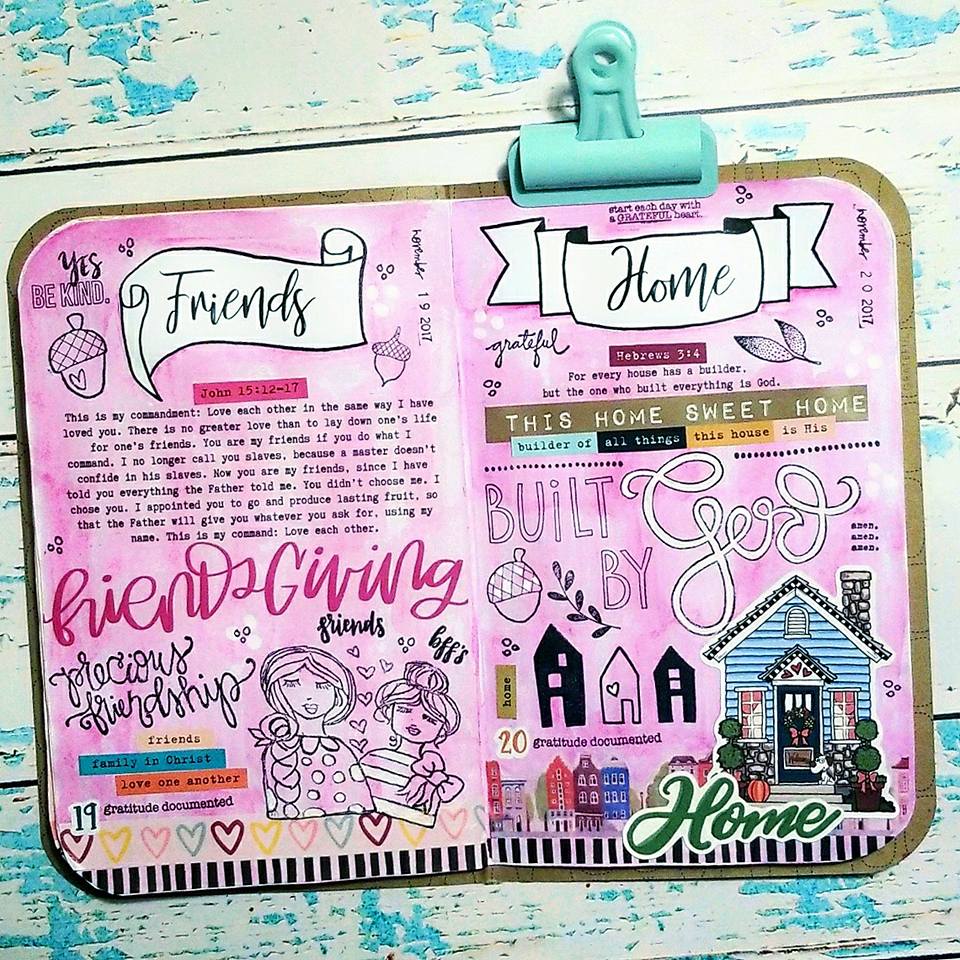 YES
BE KIND.
Friends
november 19 2017
John 15:12-17
This is my commandment: Love each other in the same way I have
loved you. There is no greater love than to lay down one's life
for one's friends. You are my friends if you do what I
command. I no longer call you slaves, because a master doesn't
confide in his slaves. Now you are my friends, since I have
told you everything the Father told me. You didn't choose me. I
chose you. I appointed you to go and produce lasting fruit, so
that the Father will give you whatever you ask for, using my
name. This is my command: Love each other.
friendsGiving
friends
bff's
precious
friendship
friends
family in Christ
love one another
19 gratitude documented
start each day with
a GRATEFUL heart.
Home
november 20 2017
grateful
Hebrews 3:4
For every house has a builder,
but the one who built everything is God.
THIS HOME SWEET HOME
builder of all things this house is His
BUILT
BY
God
amen.
amen.
amen.
home
20 gratitude documented
Home